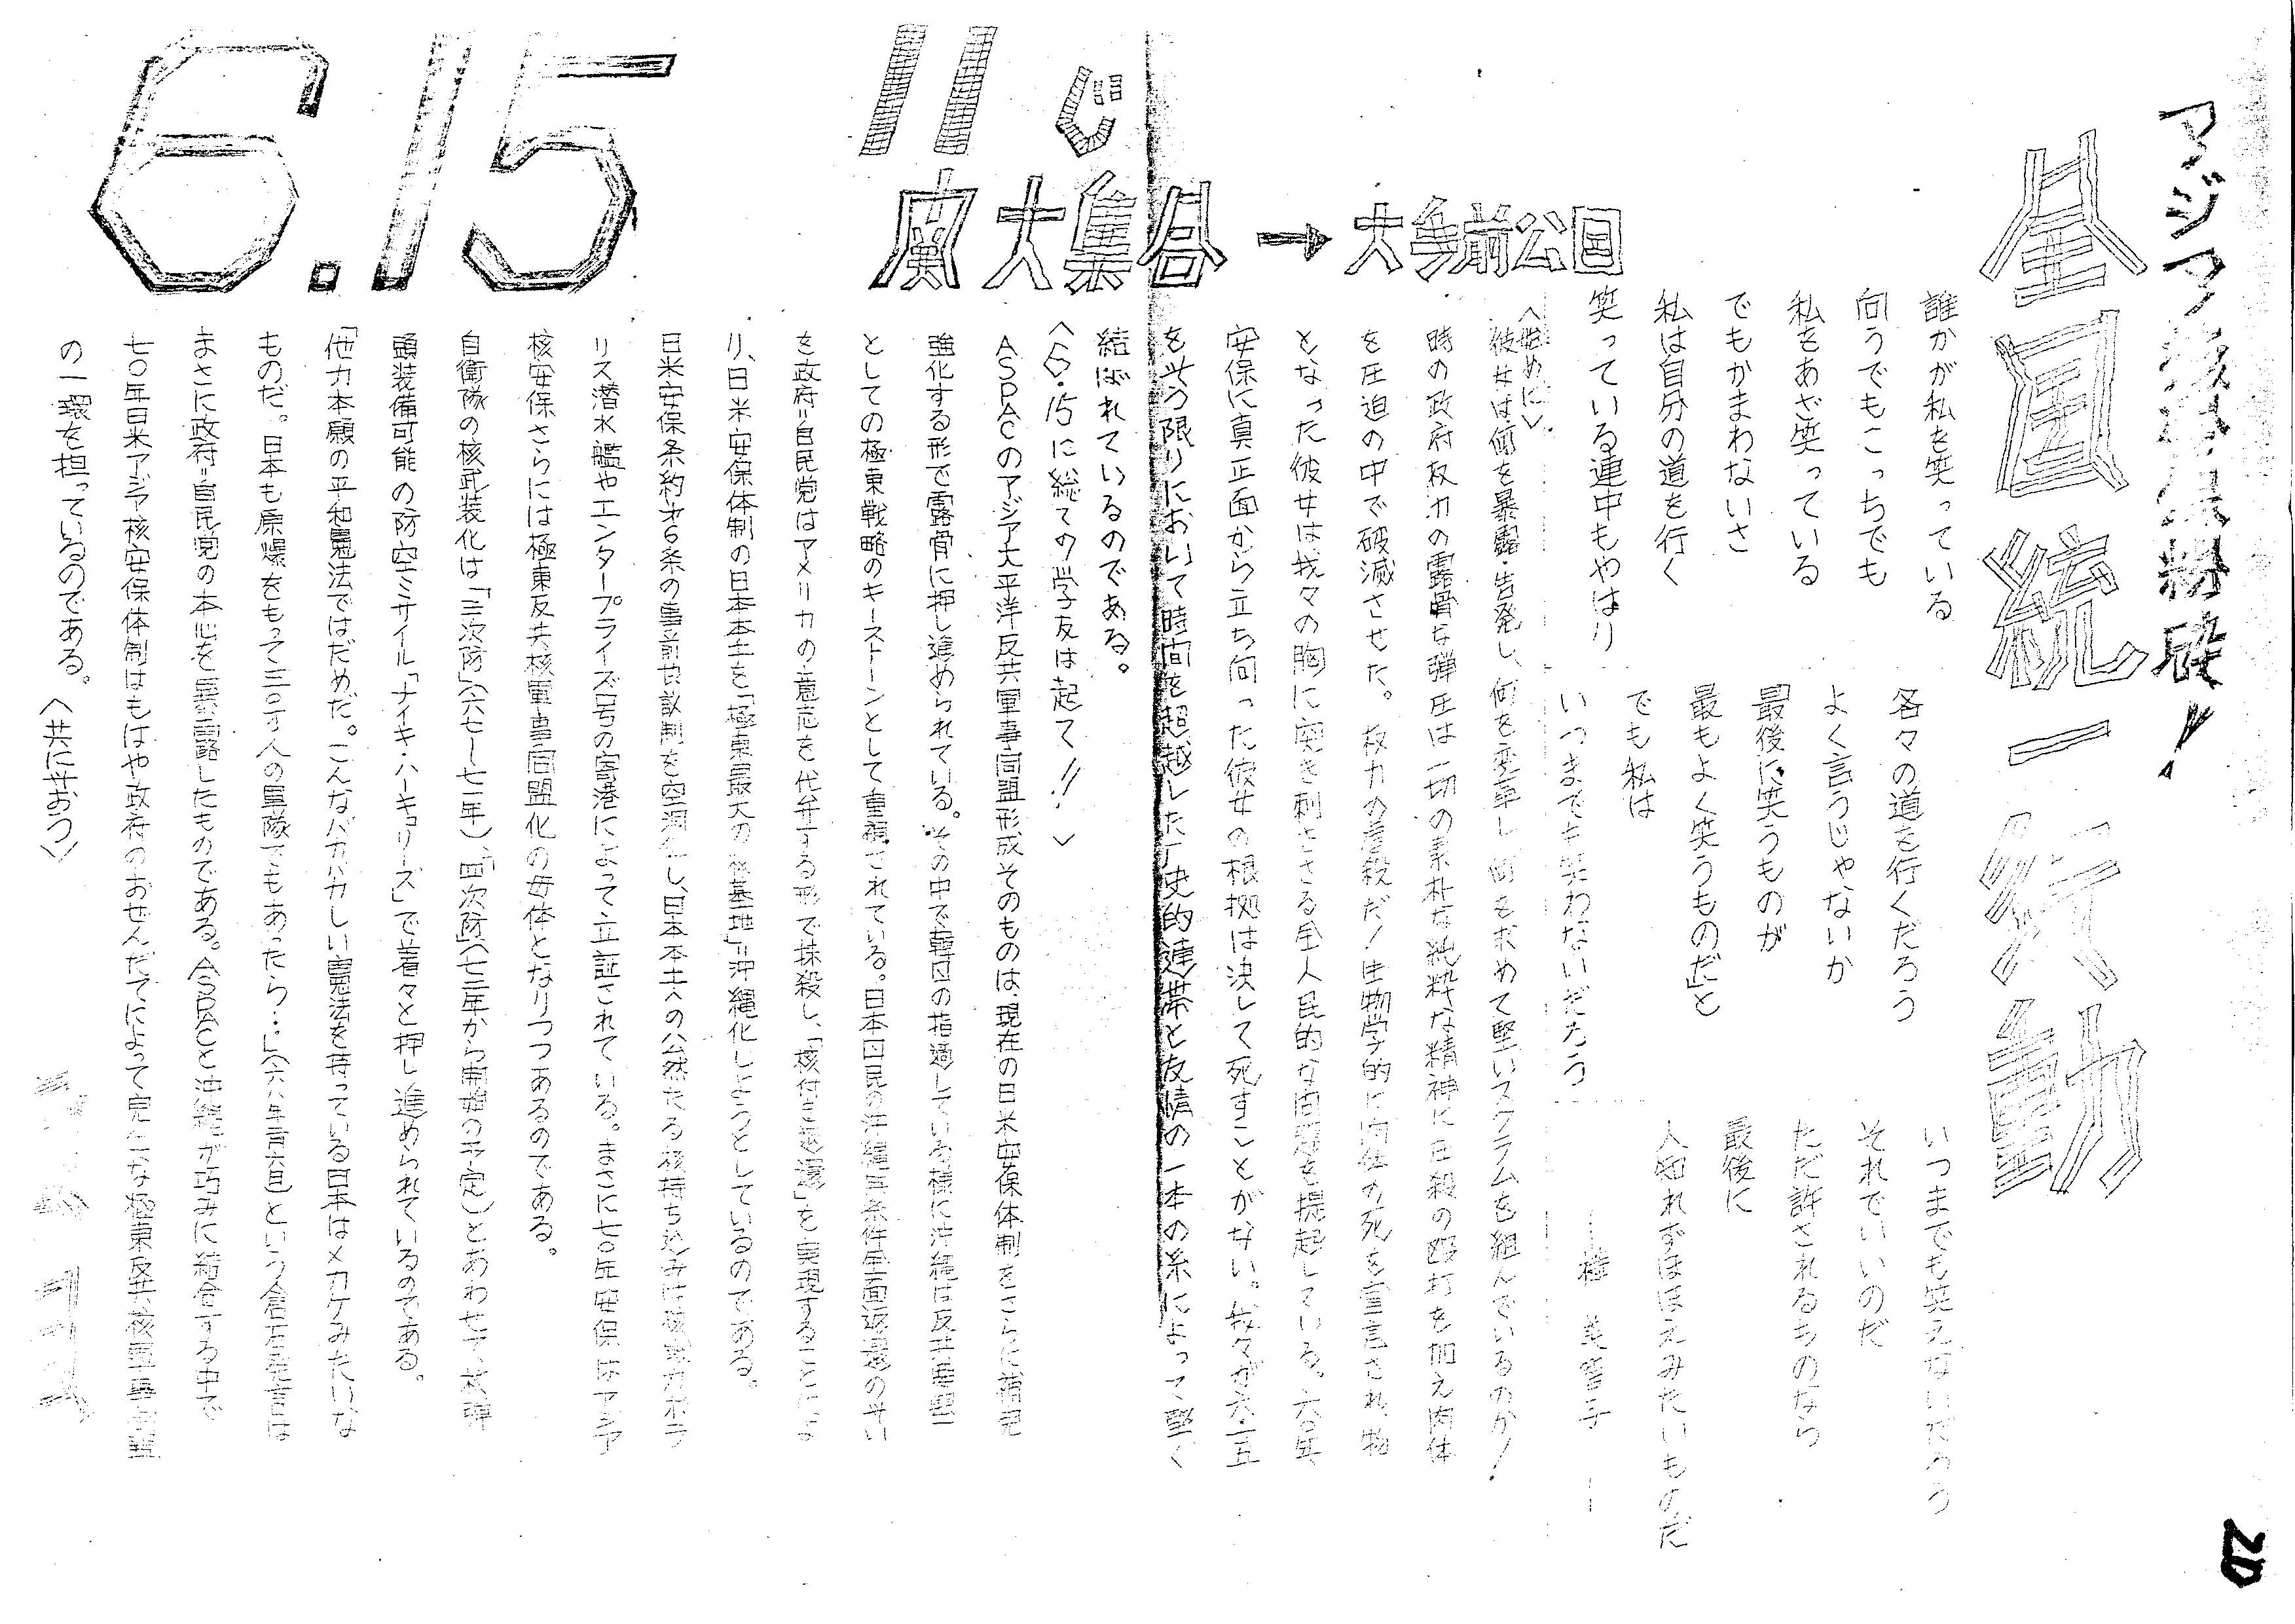 アジア核安保粉砕!
全国統一行動
誰かが私を笑っている
向うでもこっちでも
私をあざ笑っている
でもかまわないさ
私は自分の道を行く
笑っている連中もやはり
各々の道を行くだろう
よく言うじゃないか
「最後に笑うものが
最もよく笑うものだ」と
でも私は
いつまでも笑わないだろう
いつまでも笑えないだろう
それでいいのだ
ただ許されるものなら
最後に
人知れずほほえみたいものだ
―樺 美智子―
6.15
11じ
広大集合→大学前公園
〈始めに〉
彼女は何を暴露・告発し、何を変革し何を求めて堅いスクラムを組んでいるのか!
時の政府权力の露骨な弾圧は一切の素朴な純粋な精神に圧殺の殴打を加え肉体
を圧迫の中で破滅させた。权力の虐殺だ!生物学的に肉体の死を宣言され、物
となった彼女は我々の胸に突き刺ささる全人民的な問題を提起している。六〇年
安保に真正面から立ち向った彼女の根拠は決して死すことがない。我々が六・一五
を光う限りにおいて時間を超越した歴史的連帯と友情の一本の糸によって堅く
結ばれているのである。
〈6・15に総ての学友は起て!!〉
ASPACのアジア大平洋反共軍事同盟形成そのものは、現在の日米安保体制をさらに補完
強化する形で露骨に押し進められている。その中で韓国の指適している様に沖縄は反共軍事
としての極東戦略のキーストーンとして重視されている。日本国民の沖縄無条件全面返還の斗い
を政府=自民党はアメリカの意志を代弁する形で抹殺し、「核付き返還」を実現することによ
り、日米安保体制の日本本土を「極東最大の核基地」=沖縄化しようとしているのである。
日米安保条約才6条の事前協議制を空洞化し、日本本土への公然たる核持ち込みは核戦力ポラ
リス潜水艦やエンタープライズ号の寄港によって立証されている。まさに七〇年安保はアジア
核安保さらには極東反共核軍事同盟化の母体となりつつあるのである。
自衛隊の核武装化は「三次防」(六七ー七一年)、「四次防」(七二年から開始の予定)とあわせて核弾
頭装備可能の防空ミサイル「ナイキ・ハーキュリーズ」で着々と押し進められているのである。
「他力本願の平和憲法ではだめだ。こんなバカバカしい憲法を持っている日本はメカケみたいな
ものだ。日本も原爆をもって三〇万人の軍隊でもあったら…」(六八年青嵐)という倉石発言は
まさに政府=自民党の本心を暴露したものである。ASPACと沖縄が巧みに結合する中で
七〇年日米アジア核安保体制はもはや政府のおぜんだてによって完全な極東反共核軍事同盟
の一環を担っているのである。〈共に斗おう〉
20